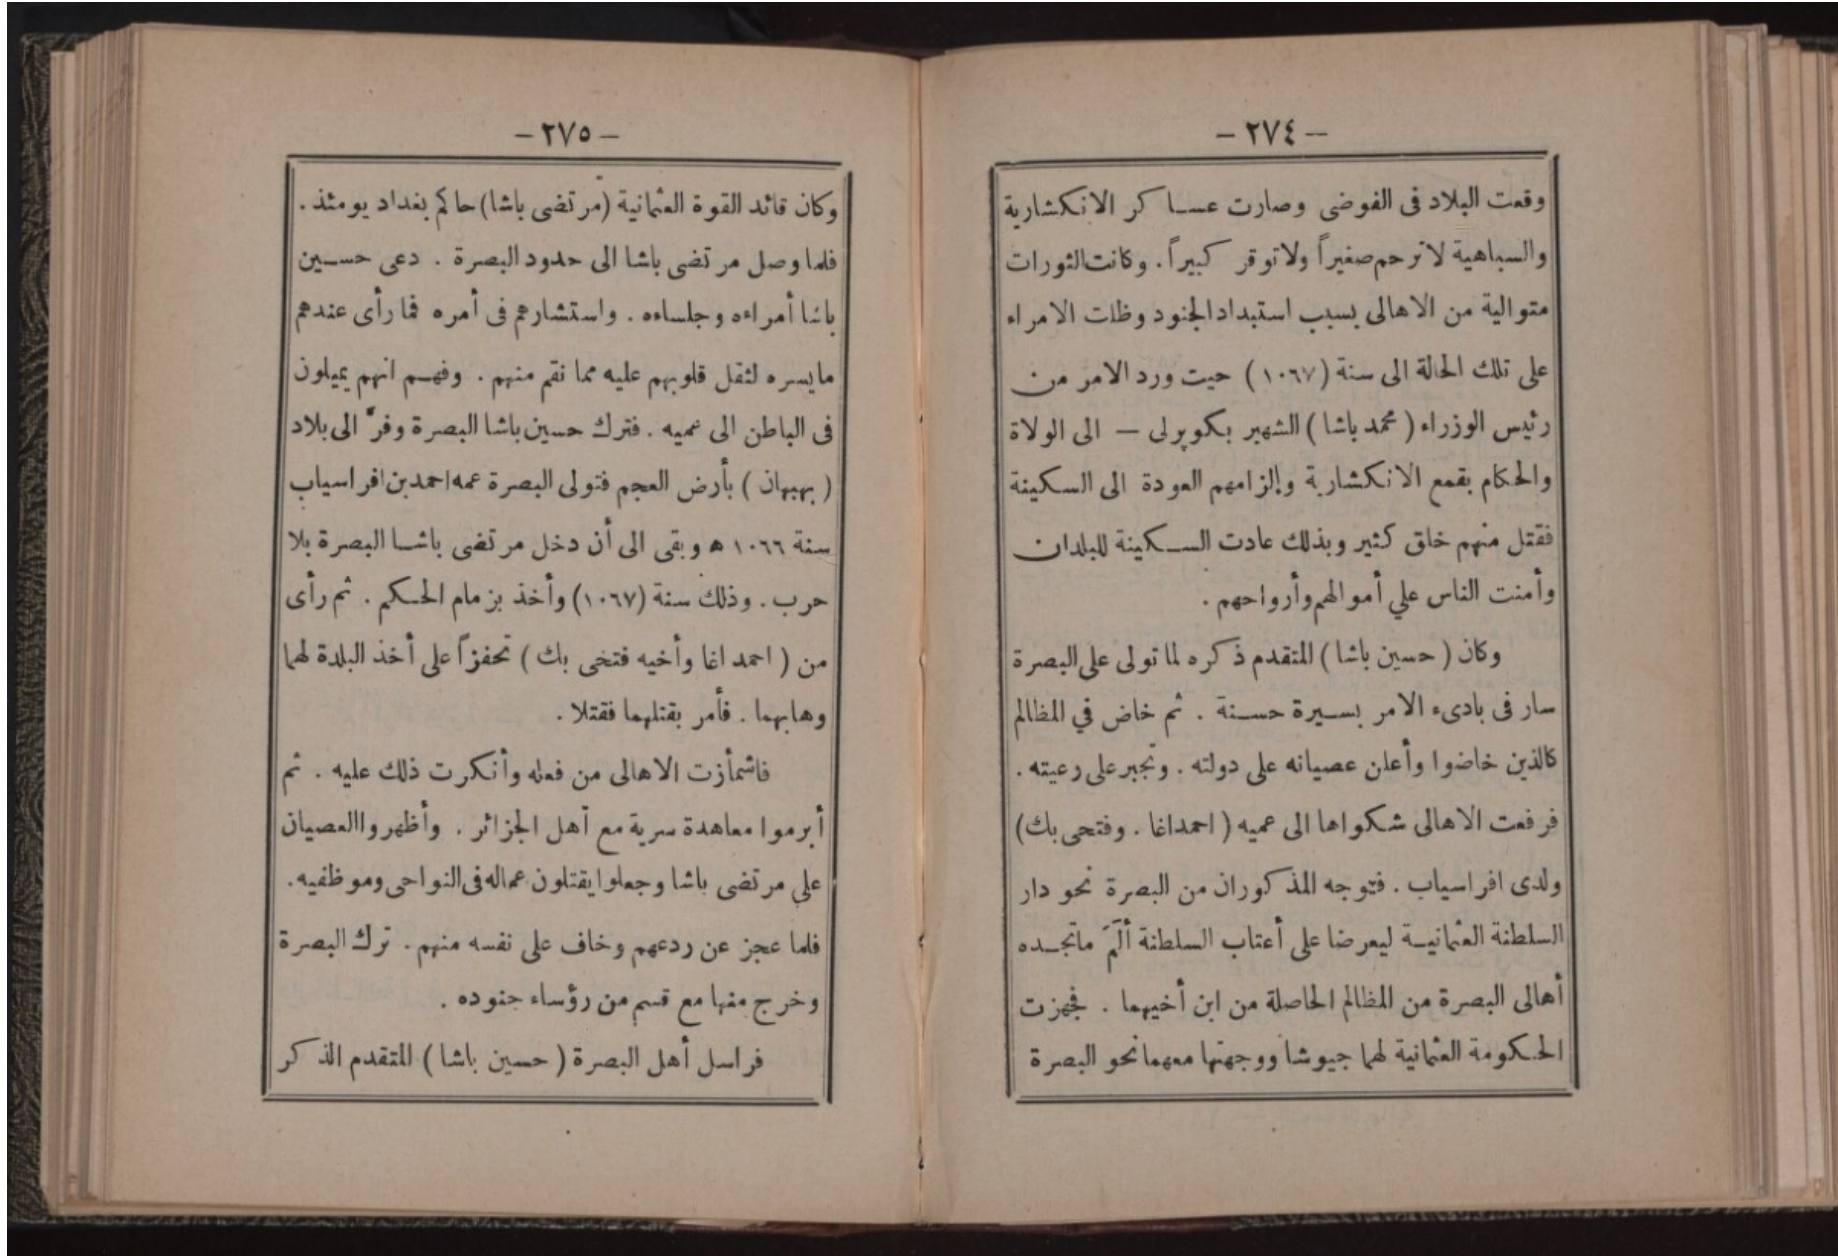 — ٢٧٤ —
وقعت البلاد فى الفوضى وصارت عساكر الانكشارية
والسباهية لا ترحم صغيراً ولا توقر كبيراً . وكانت الثورات
متوالية من الاهالى بسبب استبداد الجنود وظلت الامراء
على تلك الحالة الى سنة (١٠٦٧) حيت ورد الامر من
رئيس الوزراء ( محمد باشا ) الشهير بكوپرلى — الى الولاة
والحكام بقمع الانكشارية وإلزامهم العودة الى السكينة
فقتل منهم خلق كثير وبذلك عادت السكينة للبلدان
وأمنت الناس علي أموالهم وأرواحهم .
وكان ( حسين باشا ) المتقدم ذكره لما تولى على البصرة
سار فى بادىء الامر بسيرة حسنة . ثم خاض في المظالم
كالذين خاضوا وأعلن عصيانه على دولته . وتجبر على رعيته .
فرفعت الاهالى شكواها الى عميه ( احمد اغا . وفتحى بك )
ولدى افراسياب . فتوجه المذكوران من البصرة نحو دار
السلطنة العثمانية ليعرضا على أعتاب السلطنة ألَمَ ماتجده
أهالى البصرة من المظالم الحاصلة من ابن أخيهما . فجهزت
الحكومة العثمانية لهما جيوشا ووجهتها معهما نحو البصرة
— ٢٧٥ —
وكان قائد القوة العثمانية (مرتضى باشا) حاكم بغداد يومئذ .
فلما وصل مرتضى باشا الى حدود البصرة . دعى حسين
باشا أمراءه وجلساءه . واستشارهم فى أمره فما رأى عندهم
مايسره لثقل قلوبهم عليه مما نقم منهم . وفهم انهم يميلون
فى الباطن الى عميه . فترك حسين باشا البصرة وفرَّ الى بلاد
( بهبهان ) بأرض العجم فتولى البصرة عمه احمد بن افراسياب
سنة ١٠٦٦ ه وبقى الى أن دخل مرتضى باشا البصرة بلا
حرب . وذلك سنة (١٠٦٧) وأخذ بزمام الحكم . ثم رأى
من ( احمد اغا وأخيه فتحى بك ) تحفزاً على أخذ البلدة لهما
وهابهما . فأمر بقتلهما فقتلا .
فاشمأزت الاهالى من فعله وأنكرت ذلك عليه . ثم
أبرموا معاهدة سرية مع أهل الجزائر . وأظهروا العصيان
علي مرتضى باشا وجعلوا يقتلون عماله فى النواحى وموظفيه .
فلما عجز عن ردعهم وخاف على نفسه منهم . ترك البصرة
وخرج منها مع قسم من رؤساء جنوده .
فراسل أهل البصرة ( حسين باشا ) المتقدم الذكر